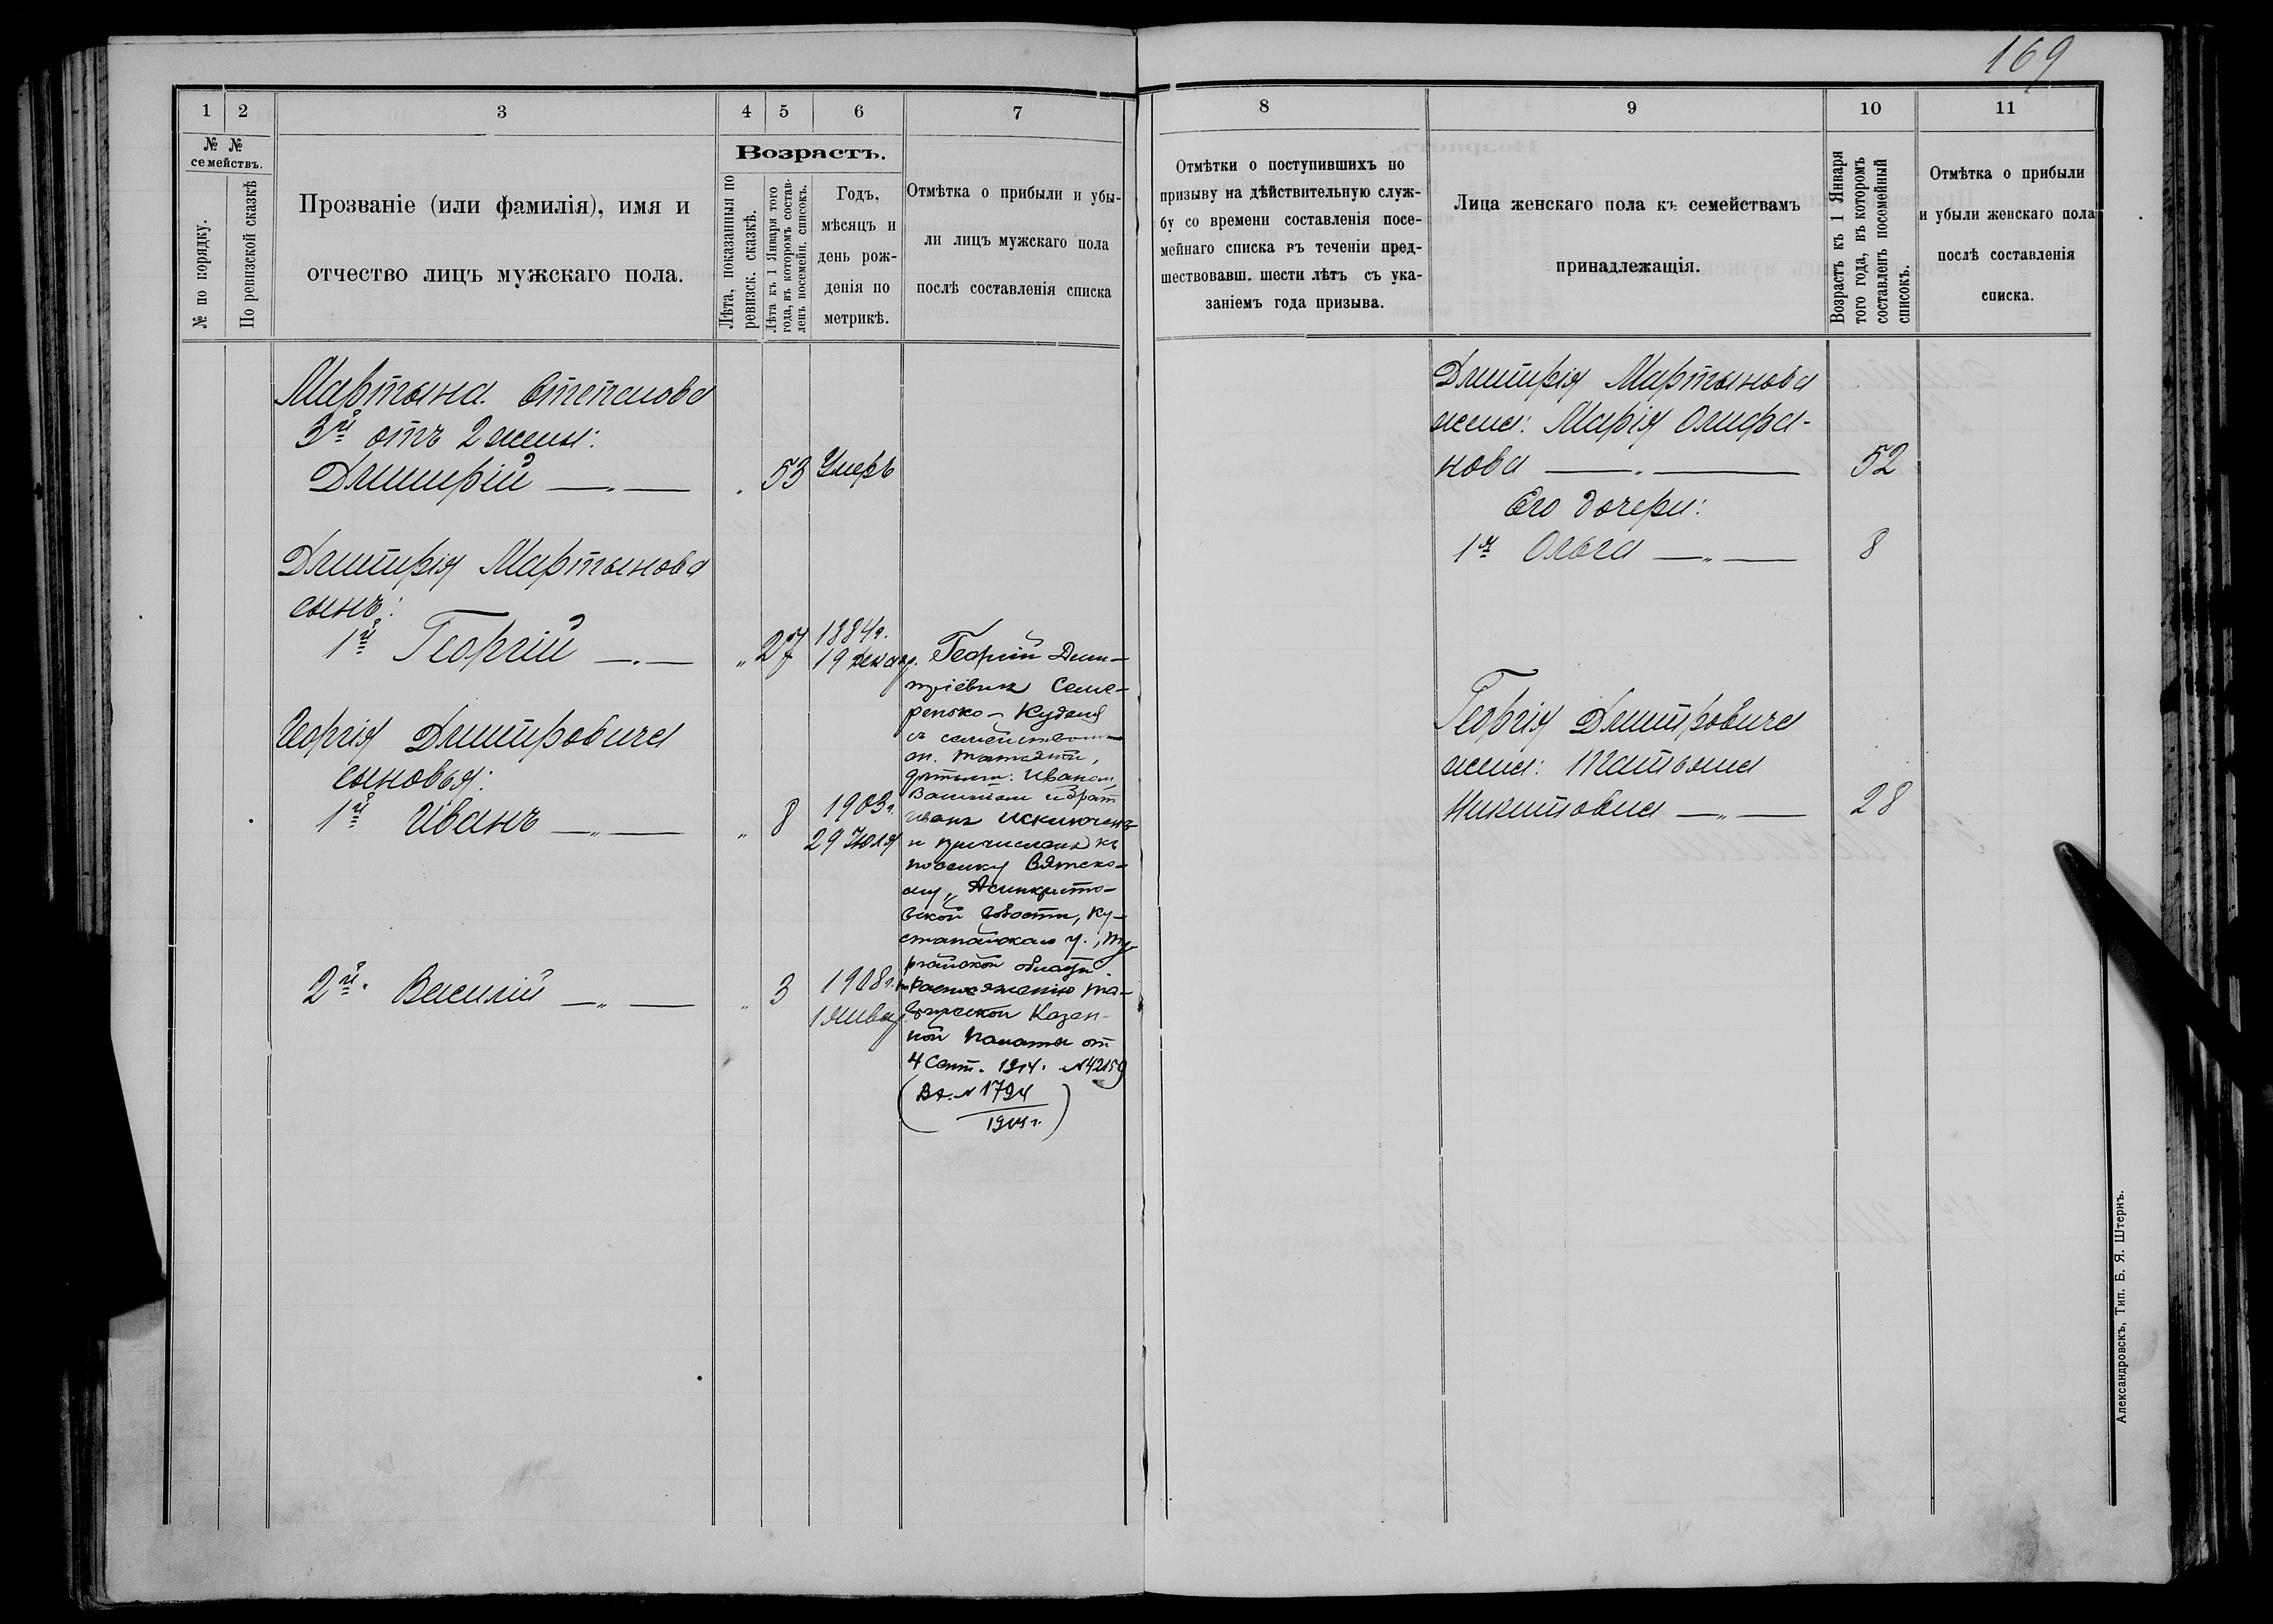 169
1
2
3
4
5
6
7
№ №
семействъ.
№ по порядку.
По ревизской сказкѣ
Прозваніе (или фамилія), имя и
отчество лицъ мужскаго пола.
Возрастъ.
Лѣта, показанныя по
ревизск. сказкѣ.
Лѣта къ 1 Января того
года, въ которомъ состав-
ленъ посемейн. списокъ.
Годъ,
мѣсяцъ и
день рож-
денія по
метрикѣ.
Отмѣтка о прибыли и убы-
ли лицъ мужскаго пола
послѣ составленія списка
Мартына Степанова
3й отъ 2 жены:
Дмитрій — „ —
53 Умеръ
Дмитрія Мартынова
сынъ:
1й Георгій — „ —
„ 27
1884 г.
19 декабр.
Георгія Дмитровича
сыновья:
1й Иванъ — „ —
„ 8
1903 г.
29 Юля
2й Василій — „ —
„ 3
1908 г.
1 январ.
Георгій Дми-
тріевичъ Семе-
ренько-
с семейством
ж. Татьяной,
детьми: Иваном,
Василіем и брат
Иван исключены
и причислены к
поселку Вятско-
му, Асинкрито-
вской волости, Ку-
станайскаго у., Ту-
ргайской области
по распоряженію Та-
врической Казен-
ной Палаты от
4 Сент. 1914 г. №42159
(Вх. № 1794
1914 г.)
8
9
10
11
Отмѣтки о поступившихъ по
призыву на дѣйствительную служ-
бу со времени составленія посе-
мейнаго списка въ теченіи пред-
шествовавш. шести лѣтъ съ ука-
заніемъ года призыва.
Лица женскаго пола къ семействамъ
принадлежащія.
Возрастъ къ 1 Января
того года, въ которомъ
составленъ посемейный
списокъ.
Отмѣтка о прибыли
и убыли женскаго пола
послѣ составленія
списка.
Дмитрія Мартынова
жена: Марія Олифа-
нова — „ — 52
Его дочери:
1я Ольга — „ — 8
Георгія Дмитровича
жена: Татьяна
Никитовна — „ — 28
Александровскъ, Тип. Б. Я. Штернъ.